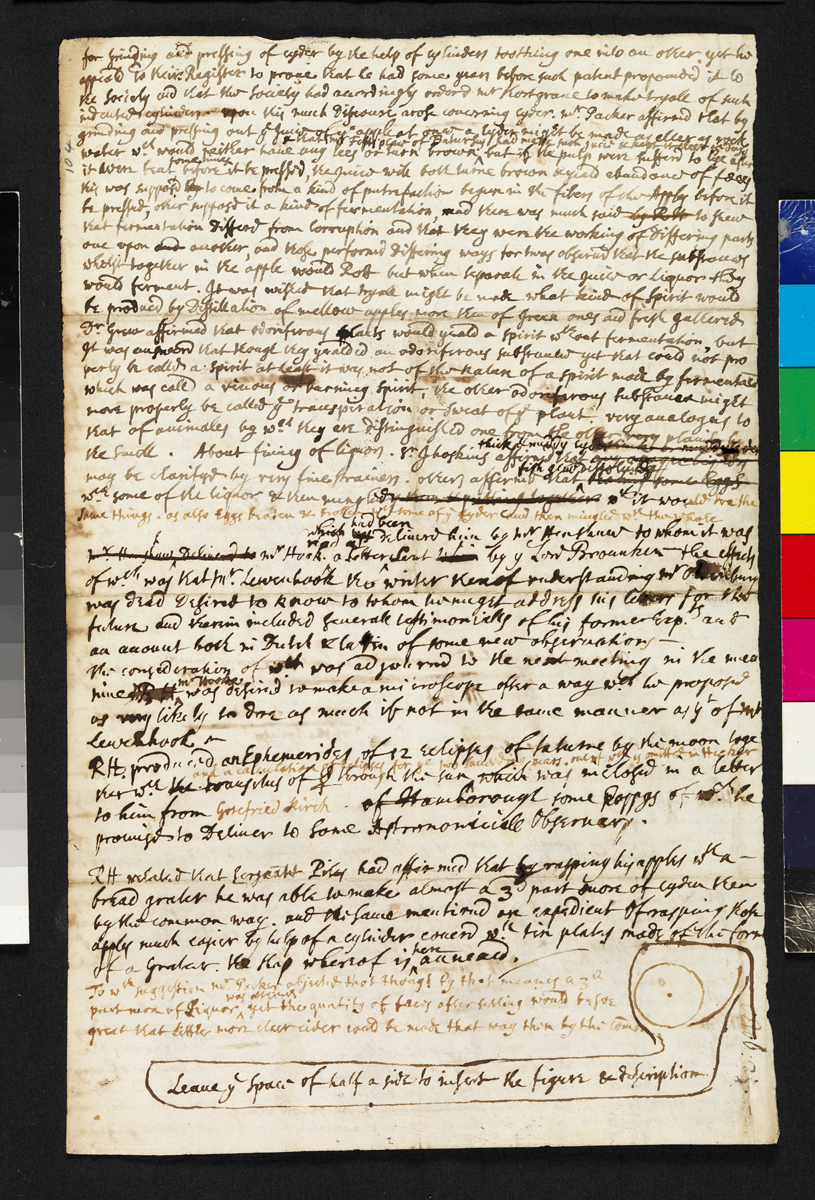 for grinding and pressing of cyder by the help of cylinders toothing one into an other, yet he
appeald to their Register to prove that he had some years before such patent propounded it to
the Society and that the Society had accordingly orderd mr Hosgrave to make tryall of such
indented cylinders upon this much Discourse arose concerning cyder. mr. Packer affirmd that by
grinding and pressing out ye Juice of ye apple at once a cyder might be made as cleer as rock
water wch would neither have any lees or turn brown but if the pulp were sufferd to lye after
it were beat some times before it be pressed, the Juice will both turne brown & yeald abundance of faeces
this was supposd to come from a kind of putrefaction begun in the fibers of the Apple before it
be pressed, other supposd it a kind of fermentation, and there was much said by RH to shew
that fermentation differd from corruption and that they were the working of differing parts
one upon another, and those performd differing ways for twas observd that the substances
whilst together in the apple would Rott but when separate in the Juice or liquor they
would ferment. It was wished that tryall might be made what kind of Spirit would
be produced by Distillation of mellow apples more then of Green ones and fresh gatherd
Dr. Grew affirmed that odoriferous plants would yeald a spirit without fermentation, but
It was answerd that though they yealded an odoriferous substance yet that could not pro
perly be called a spirit at least it was not of the nature of a spirit made by fermentation
which was calld a vinous or burning spirit, the other odoriferous substance might
more properly be called ye transpiration or sweat of ye plant very analogus to
that of animalls by wch they are distinguished one from the other
the smell. About fining of liquors. Sr J hoskins affirmd that thick & muddy cyder
may be claryfyd by very fine strainers. others affirmed that fish glew dissolved
wth some of the liquor & then mingled wth it would doe the
same thing. as also Eggs beaten & broken wth some of ye Cyder and then mingled wth the whole
mr Hook. a letter sent which had been Deliverd him by mr Henshaw to whom it was by ye Lord Brouncker the effect
of wch was that mr. Lewenhook the writer thereof understanding mr Oldenburg
was dead Desired to know to whom he might address his letters for the
future and therein included severall testimonialls of his former Exp.ts and
an account both in Dutch & latin of some new observations —
the consideration of wch was adjournd to the next meeting in the mean
time mr Hooke was desired to make a microscope after a way wch he proposd
as very likely to doe as much if not in the same manner as yt of mr
Lewenhook.
RH. produced an Ephemerides of 12 Eclipses of saturne by the moon toge
and a calculation of eclipses for ye two succeeding years. most whereof omitted in Hecker
ther wth the transitus of ☿ through the sun which was inclosed in a letter
to him from Gotefried Kirch. of Hamborough some copys of wch he
promisd to Deliver to some Astronomicall Observers.
RH related that sergeant Piles had affirmed that by rasping his apples wth a
bread grater he was able to make almost a 3d part more of cyder then
by the common way. and the same mentiond an expedient of rasping those
apples much easier by help of a cylinder coverd wth tin plates made of the form
of a Grater. the shap whereof is here annexed.
To wch suggestion mr. Packer objected that though by that means a 3d
part more of Liquor was obtaind yet the quantity of faeces after setling would be soe
great that little more cleer cider could be made that way then by the common
Leave ye space of half a side to insert the figure & description.